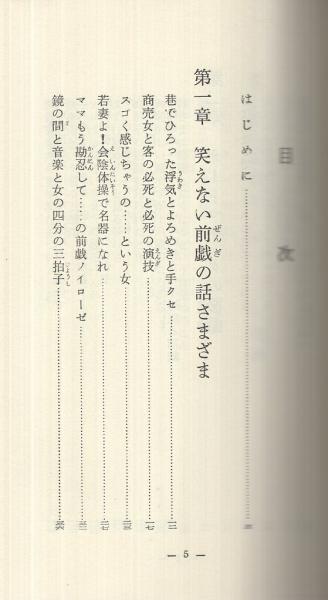 目次
はじめに
第一章　笑えない前戯の話さまざま
巷でひろった浮気とよろめきと手クセ……一三
商売女と客の必死と必死の演技……一七
スゴく感じちゃうの……という女
若妻よ！会陰体操で名器になれ
ママもう勘忍して……の前戯ノイローゼ
鏡の間と音楽と女の四分の三拍子
— 5 —